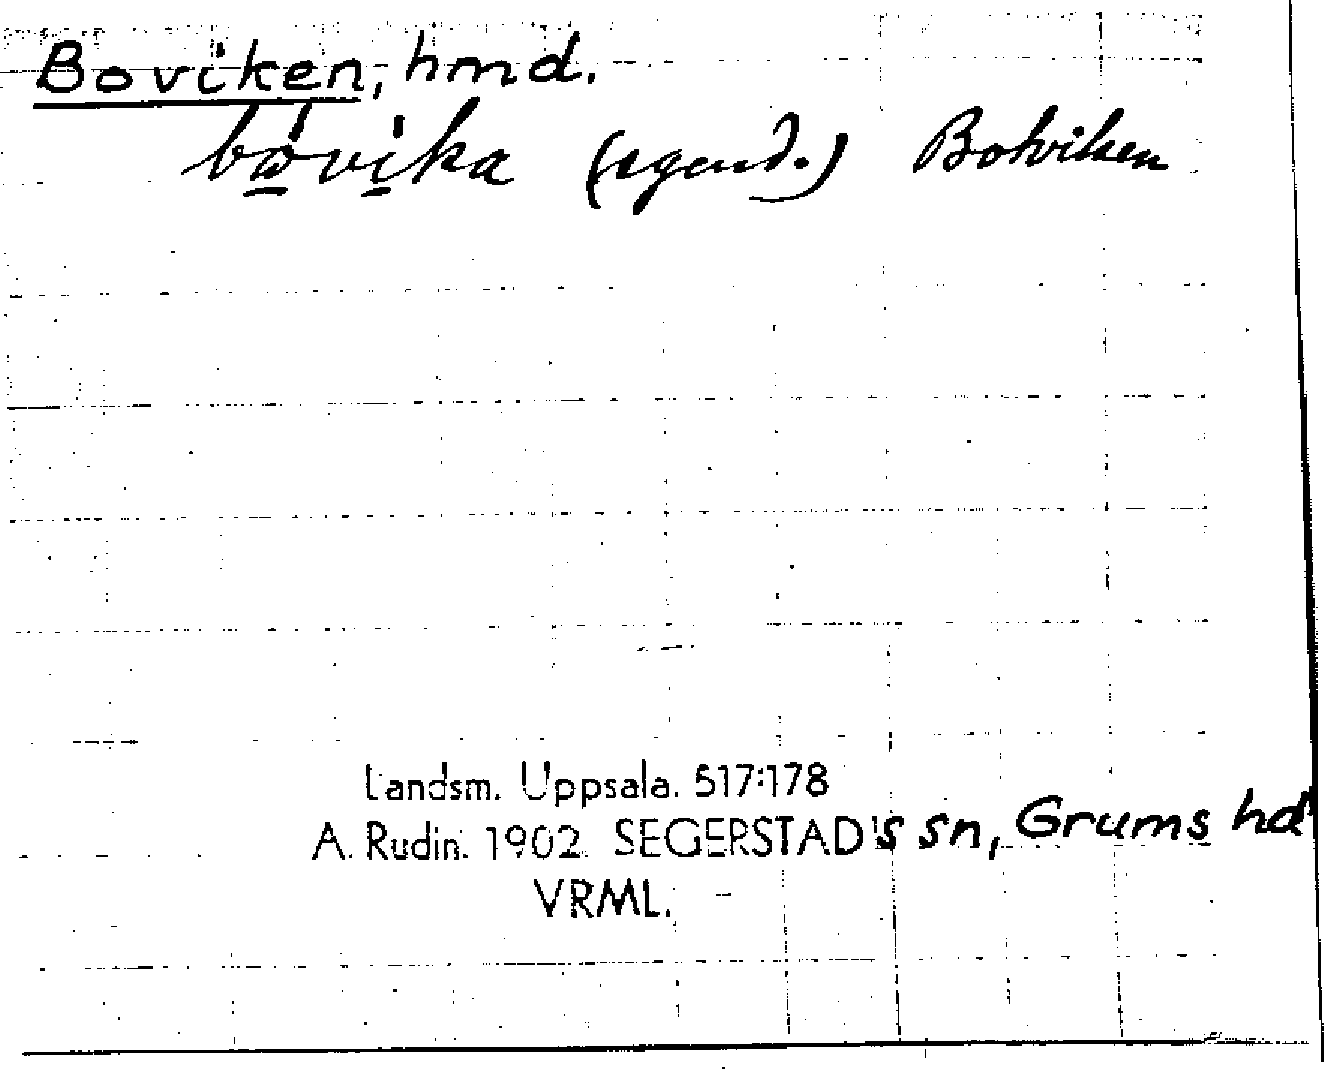 Boviken, hmd.
bo̱vi̱ka (egend.) Botviken
Landsm. Uppsala. 517:178
A. Rudin. 1902. SEGERSTAD's sn, Grums hd
VRML.